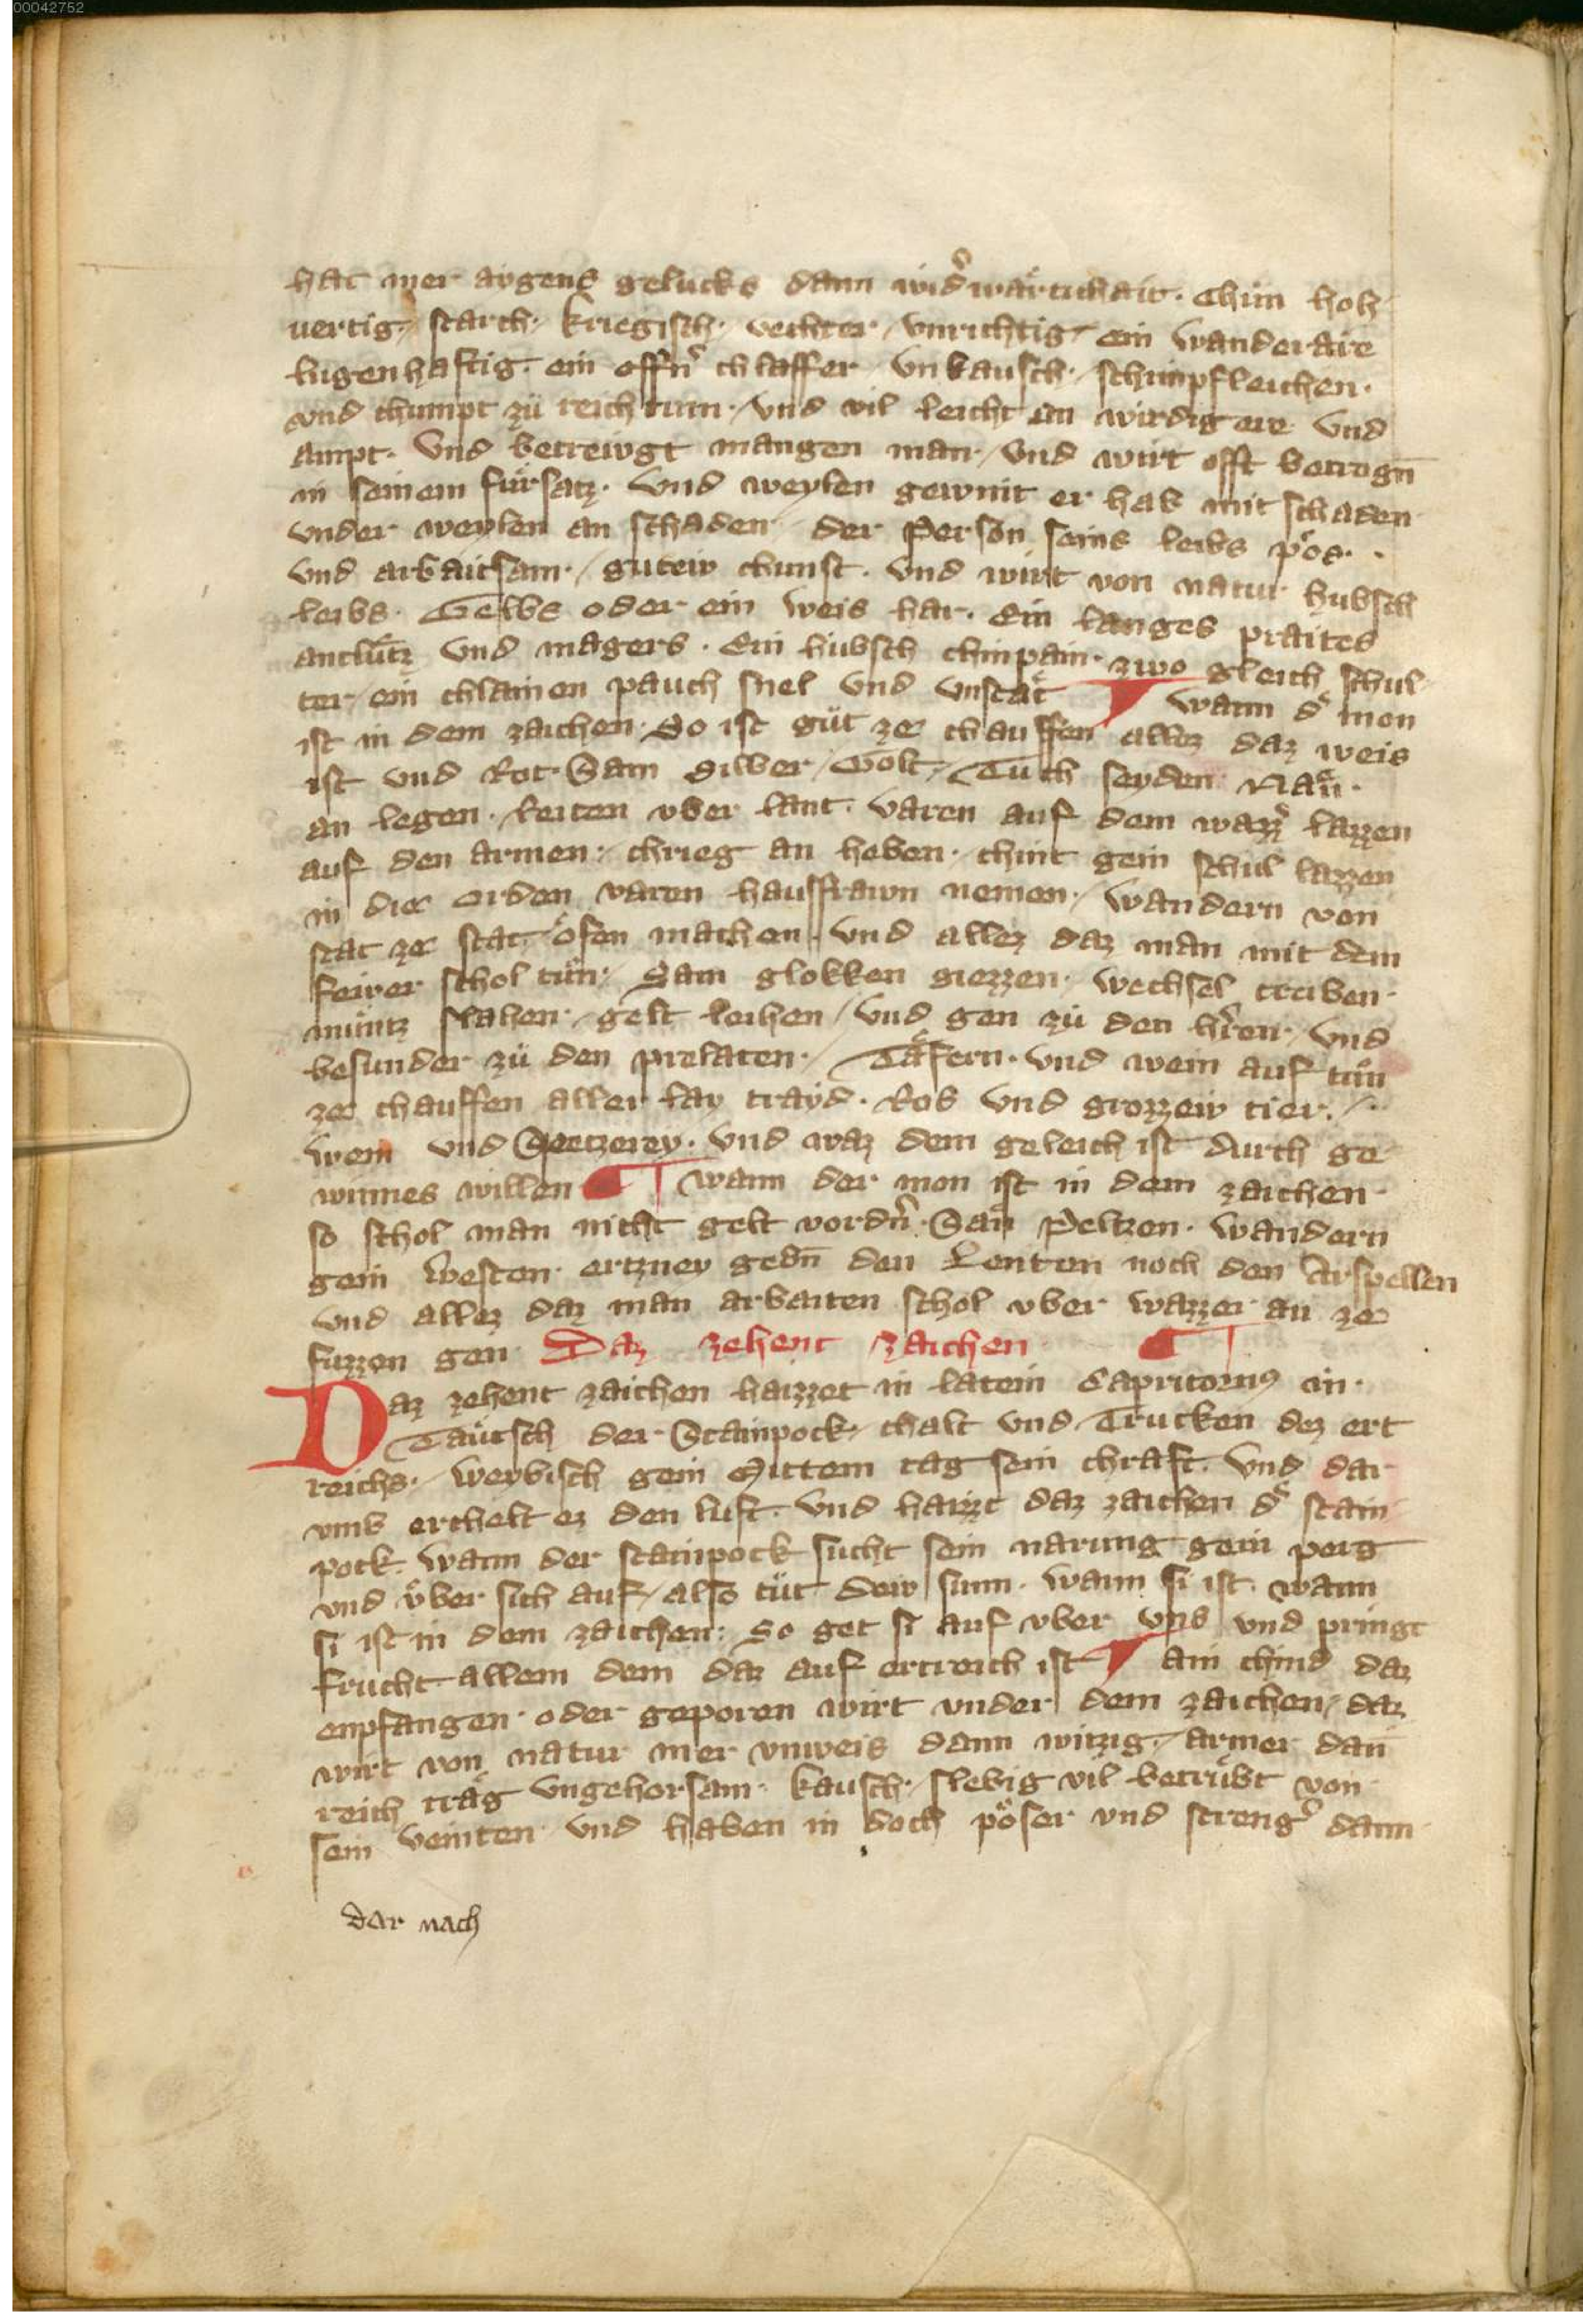 00042752
hat mer aygens gelucks dann widerwärtichait. Chün hoh
uertig / starch / kriegisch / vechter / vnrichtig / ein wanderäre
lugenhaftig. ein offner chlaffer / vnkausch / schimpfleichen.
vnd chumpt zü reichtum / vnd vil leicht an wirdig ere vnd
ampt. Vnd betreivgt mangen man / vnd wirt offt betrogn̄
in seinem fürsatz. Vnd weylen gewint er hab mit schaden
vnder weylen an schaden / der Person seins leibs pös.
vnd arbaitsam / guteiv chunst. vnd wirt von natur hubsch
leibs. Gelbs oder ein weis har. Ein langes praites
antlütz vnd magers. Ein hübsch chinpain. zwo gleich schul
ter / ein chlainen pauch snel vnd vnstät ¶ wann der mon
ist in dem zaichen. So ist güt ze chauffen allez daz weis
ist vnd Rot. Sam Silber / Golt / Tuch seyden Näu.
an legen. Reiten vber lant. varen auf dem wazzer lazzen
auf den armen / chrieg an heben. chint gein schul lazzen
in die orden varen hausfrawn nemen / wandern von
stat ze stat öfen machen. vnd allez daz man mit dem
feiver schol tün / Sam glokken giezzen. wechsel treiben.
müntz slahen / gelt leihen / vnd gen zü den herren / vnd
besunder zü den prelaten. / Täfern. vnd wein auf tün
ze chauffen aller lay trayd. Ros vnd grozzeiv tier.
wein vnd Spetzerey. vnd waz dem geleich ist durch ge
winnes willen ¶ wann der mon ist in dem zaichen.
so schol man nicht gelt vordern. San Peltzen. wandern
gein westen. ertzney gebn̄ den Lenten noch den Arspellen
vnd allez daz man arbaiten schol vber wazzer an ze
fuzzen gen. Daz zehent zaichen ¶
Daz zehent zaichen haizzet in latein Capricornus in
Täutsch der Stainpock / chalt vnd Trucken dez ert
reichs / weybisch gein Mittem tag sein chraft. vnd dar
vmb erchelt ez den luft. vnd haizzt daz zaichen der stain
pock. wann der stainpock sucht sein narung gein perg
vnd über sich auf / also tüt deiv sunn. wann si ist. wann
si ist in dem zaichen: So get si auf vber vns vnd pringt
frucht allem dem daz auf ertreich ist ¶ ain chind daz
enpfangen oder geporen wirt vnder dem zaichen / daz
wirt von natur mer vnweis dann witzig / armer dan̄
reich träg vngehorsam. kausch / slebig vil betrübt von
sein veinten vnd haben in doch pöser vnd strenger dann
dar nach